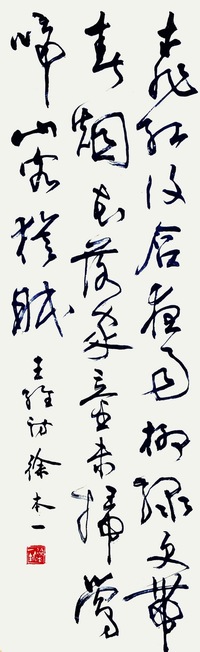 桃紅復含宿雨柳綠更帶
春烟花落家童未掃鶯
啼山客猶眠
王維詩 徐本一